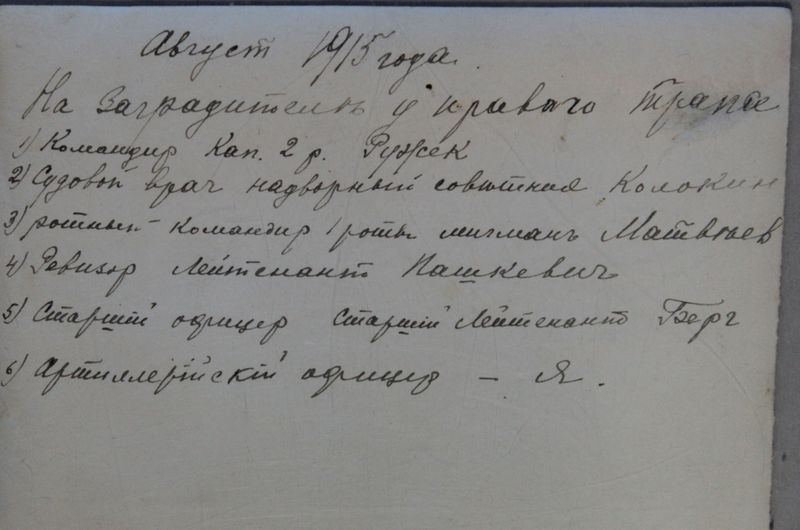 Август 1915 года.
На заградителѣ у праваго трапа
1) Командир Кап. 2 р. Ружек
2) Судовой врач надворный совѣтник Колокин
3) ротный командир 1 роты мичманъ Матвѣев
4) Ревизор Лейтенант Пашкевич
5) Старшій офицер Старшій Лейтенант Берг
6) Артиллерійскій офицер – Я.